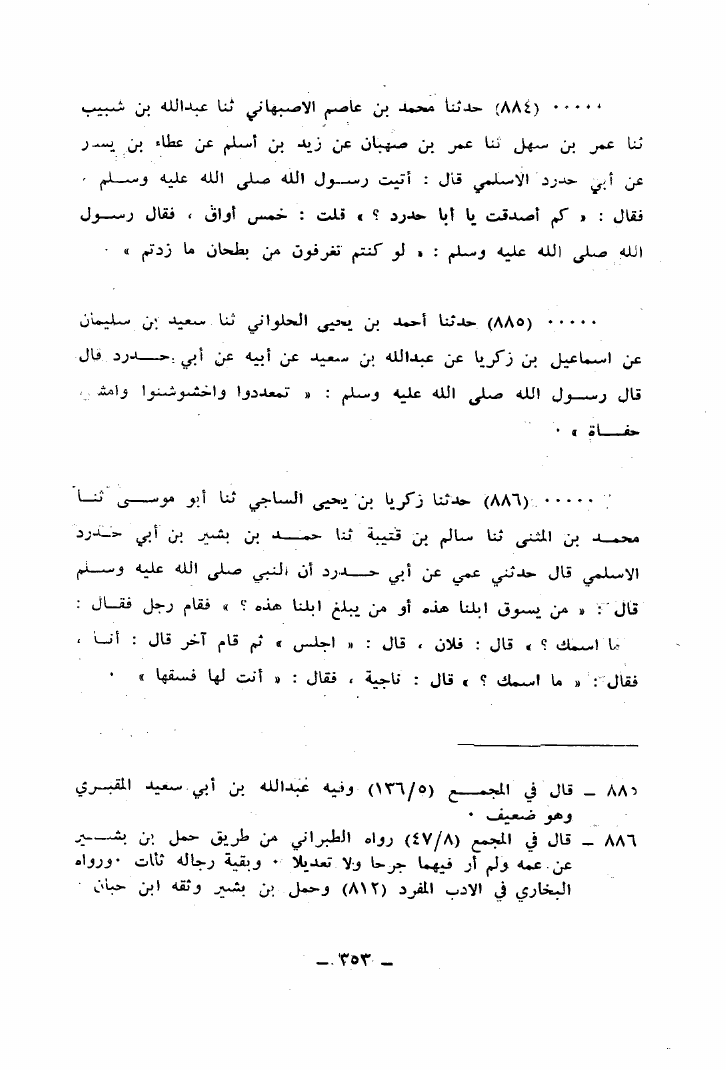 ٠٠٠٠٠ (٨٨٤) حدثنا محمد بن عاصم الاصبهاني ثنا عبدالله بن شبيب
ثنا عمر بن سهل ثنا عمر بن صهبان عن زيد بن أسلم عن عطاء بن يسار
عن أبي حدرد الاسلمي قال : أتيت رسول الله صلى الله عليه وسلم ،
فقال : « كم أصدقت يا أبا حدرد ؟ » قلت : خمس أواق ، فقال رسول
الله صلى الله عليه وسلم : « لو كنتم تغرفون من بطحان ما زدتم » ٠
٠٠٠٠٠ (٨٨٥) حدثنا أحمد بن يحيى الحلواني ثنا سعيد بن سليمان
عن اسماعيل بن زكريا عن عبدالله بن سعيد عن أبيه عن أبي حدرد قال
قال رسول الله صلى الله عليه وسلم : « تمعددوا واخشوشنوا وامشوا
حفاة » ٠
٠٠٠٠٠ (٨٨٦) حدثنا زكريا بن يحيى الساجي ثنا أبو موسى ثنا
محمد بن المثنى ثنا سالم بن قتيبة ثنا حمد بن بشير بن أبي حدرد
الاسلمي قال حدثني عمي عن أبي حدرد أن النبي صلى الله عليه وسلم
قال : « من يسوق ابلنا هذه أو من يبلغ ابلنا هذه ؟ » فقام رجل فقال :
ما اسمك ؟ » قال : فلان ، قال : « اجلس » ثم قام آخر قال : أنا ،
فقال : « ما اسمك ؟ » قال : ناجية ، فقال : « أنت لها فسقها » ٠
٨٨٥ ـ قال في المجمع (١٣٦/٥) وفيه عبدالله بن أبي سعيد المقبري
وهو ضعيف ٠
٨٨٦ ـ قال في المجمع (٤٧/٨) رواه الطبراني من طريق حمل بن بشير
عن عمه ولم أر فيهما جرحا ولا تعديلا ٠ وبقية رجاله ثقات ٠ ورواه
البخاري في الادب المفرد (٨١٢) وحمل بن بشير وثقه ابن حبان ٠
ـ ٣٥٣ ـ